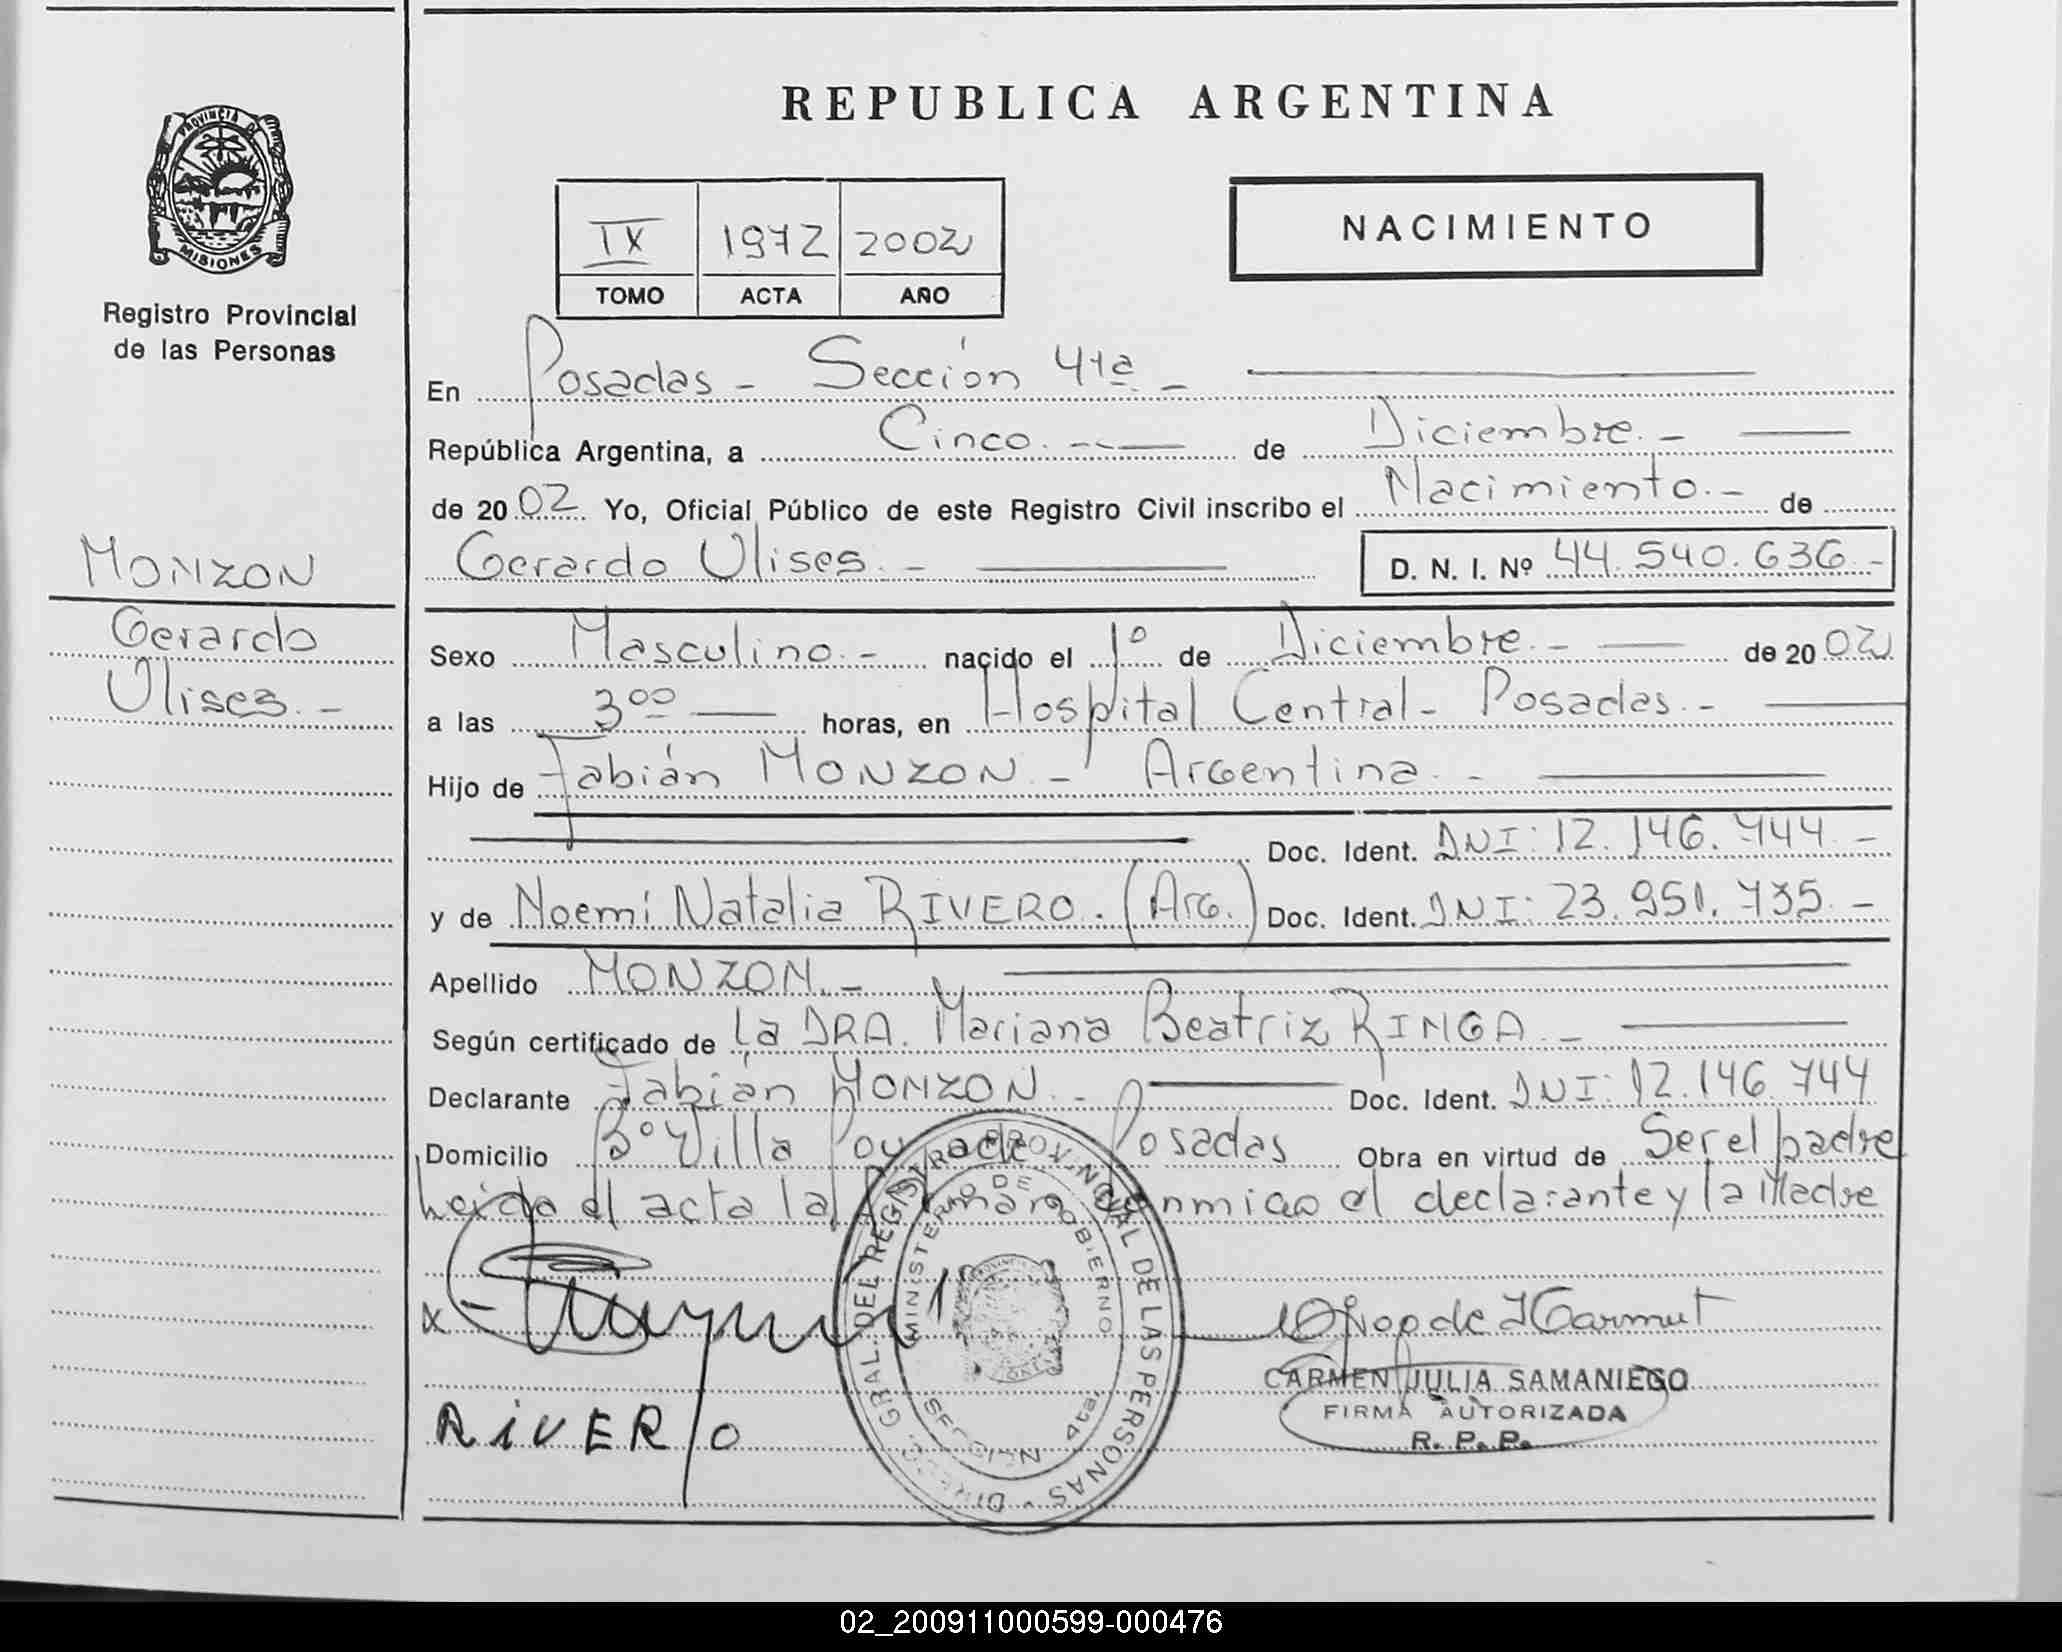 REPUBLICA ARGENTINA
PROVINCIA DE
MISIONES
Registro Provincial
de las Personas
IX 1972 2002
TOMO ACTA AÑO
NACIMIENTO
En Posadas - Sección 4ta. -
República Argentina, a Cinco. - de Diciembre. -
de 2002 Yo, Oficial Público de este Registro Civil inscribo el Nacimiento. - de
Gerardo Ulises. - D. N. I. Nº 44.540.636.-
MONZON
Gerardo
Ulises. -
Sexo Masculino. - nacido el 1º de Diciembre. - de 2002
a las 3 00 horas, en Hospital Central - Posadas. -
Hijo de Fabián MONZON. - Argentina. -
Doc. Ident. DNI: 12.146.744. -
y de Noemí Natalia RIVERO. (Arg.) Doc. Ident. DNI: 23.951.735. -
Apellido MONZON. -
Según certificado de La DRA. Mariana Beatriz RINGA. -
Declarante Fabián MONZON. - Doc. Ident. DNI: 12.146.744
Domicilio Bº Villa Posadas Obra en virtud de Ser el padre
Leida el acta la conmigo el declarante y la Madre
X
RiVERO
DIRECC. GRAL. DEL REGISTRO PROVINCIAL DE LAS PERSONAS
MINISTERIO DE GOBIERNO
SECCION 4ta.
CARMEN JULIA SAMANIEGO
FIRMA AUTORIZADA
R. P. P.
02_200911000599-000476